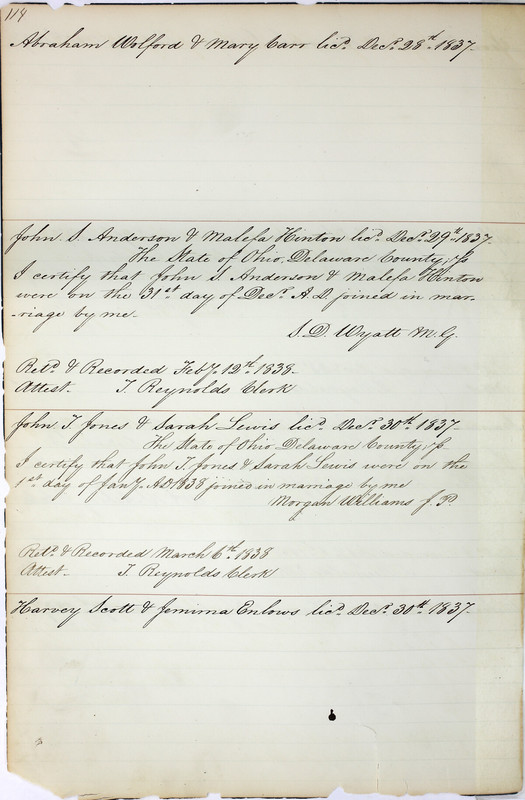 114
Abraham Wolford & Mary Carr licd. Decr. 28th. 1837.
John S. Anderson & Malefa Hinton licd. Decr. 29th. 1837.
The State of Ohio, Delaware County, ss
I certify that John S. Anderson & Malefa Hinton
were on the 31st day of Decr. A.D. joined in mar-
-riage by me.
S. D. Wyatt M. G.
Retd. & Recorded Feby. 12th. 1838.
Attest. T. Reynolds Clerk
John T Jones & Sarah Lewis licd. Decr. 30th. 1837.
The State of Ohio Delaware County, ss
I certify that John T. Jones & Sarah Lewis were on the
1st day of Jany. A.D. 1838 joined in marriage by me
Morgan Williams J. P.
Retd. & Recorded March 6th. 1838
Attest. T. Reynolds Clerk
Harvey Scott & Jemima Enlows licd. Decr. 30th. 1837.